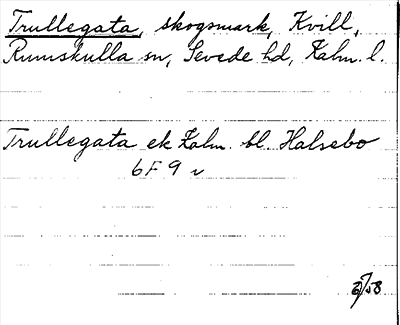 Trullegata, skogsmark, Kvill,
Rumskulla sn, Sevede hd, Kalm. l.
Trullegata ek Kalm. bl. Halsebo
6F 9 v